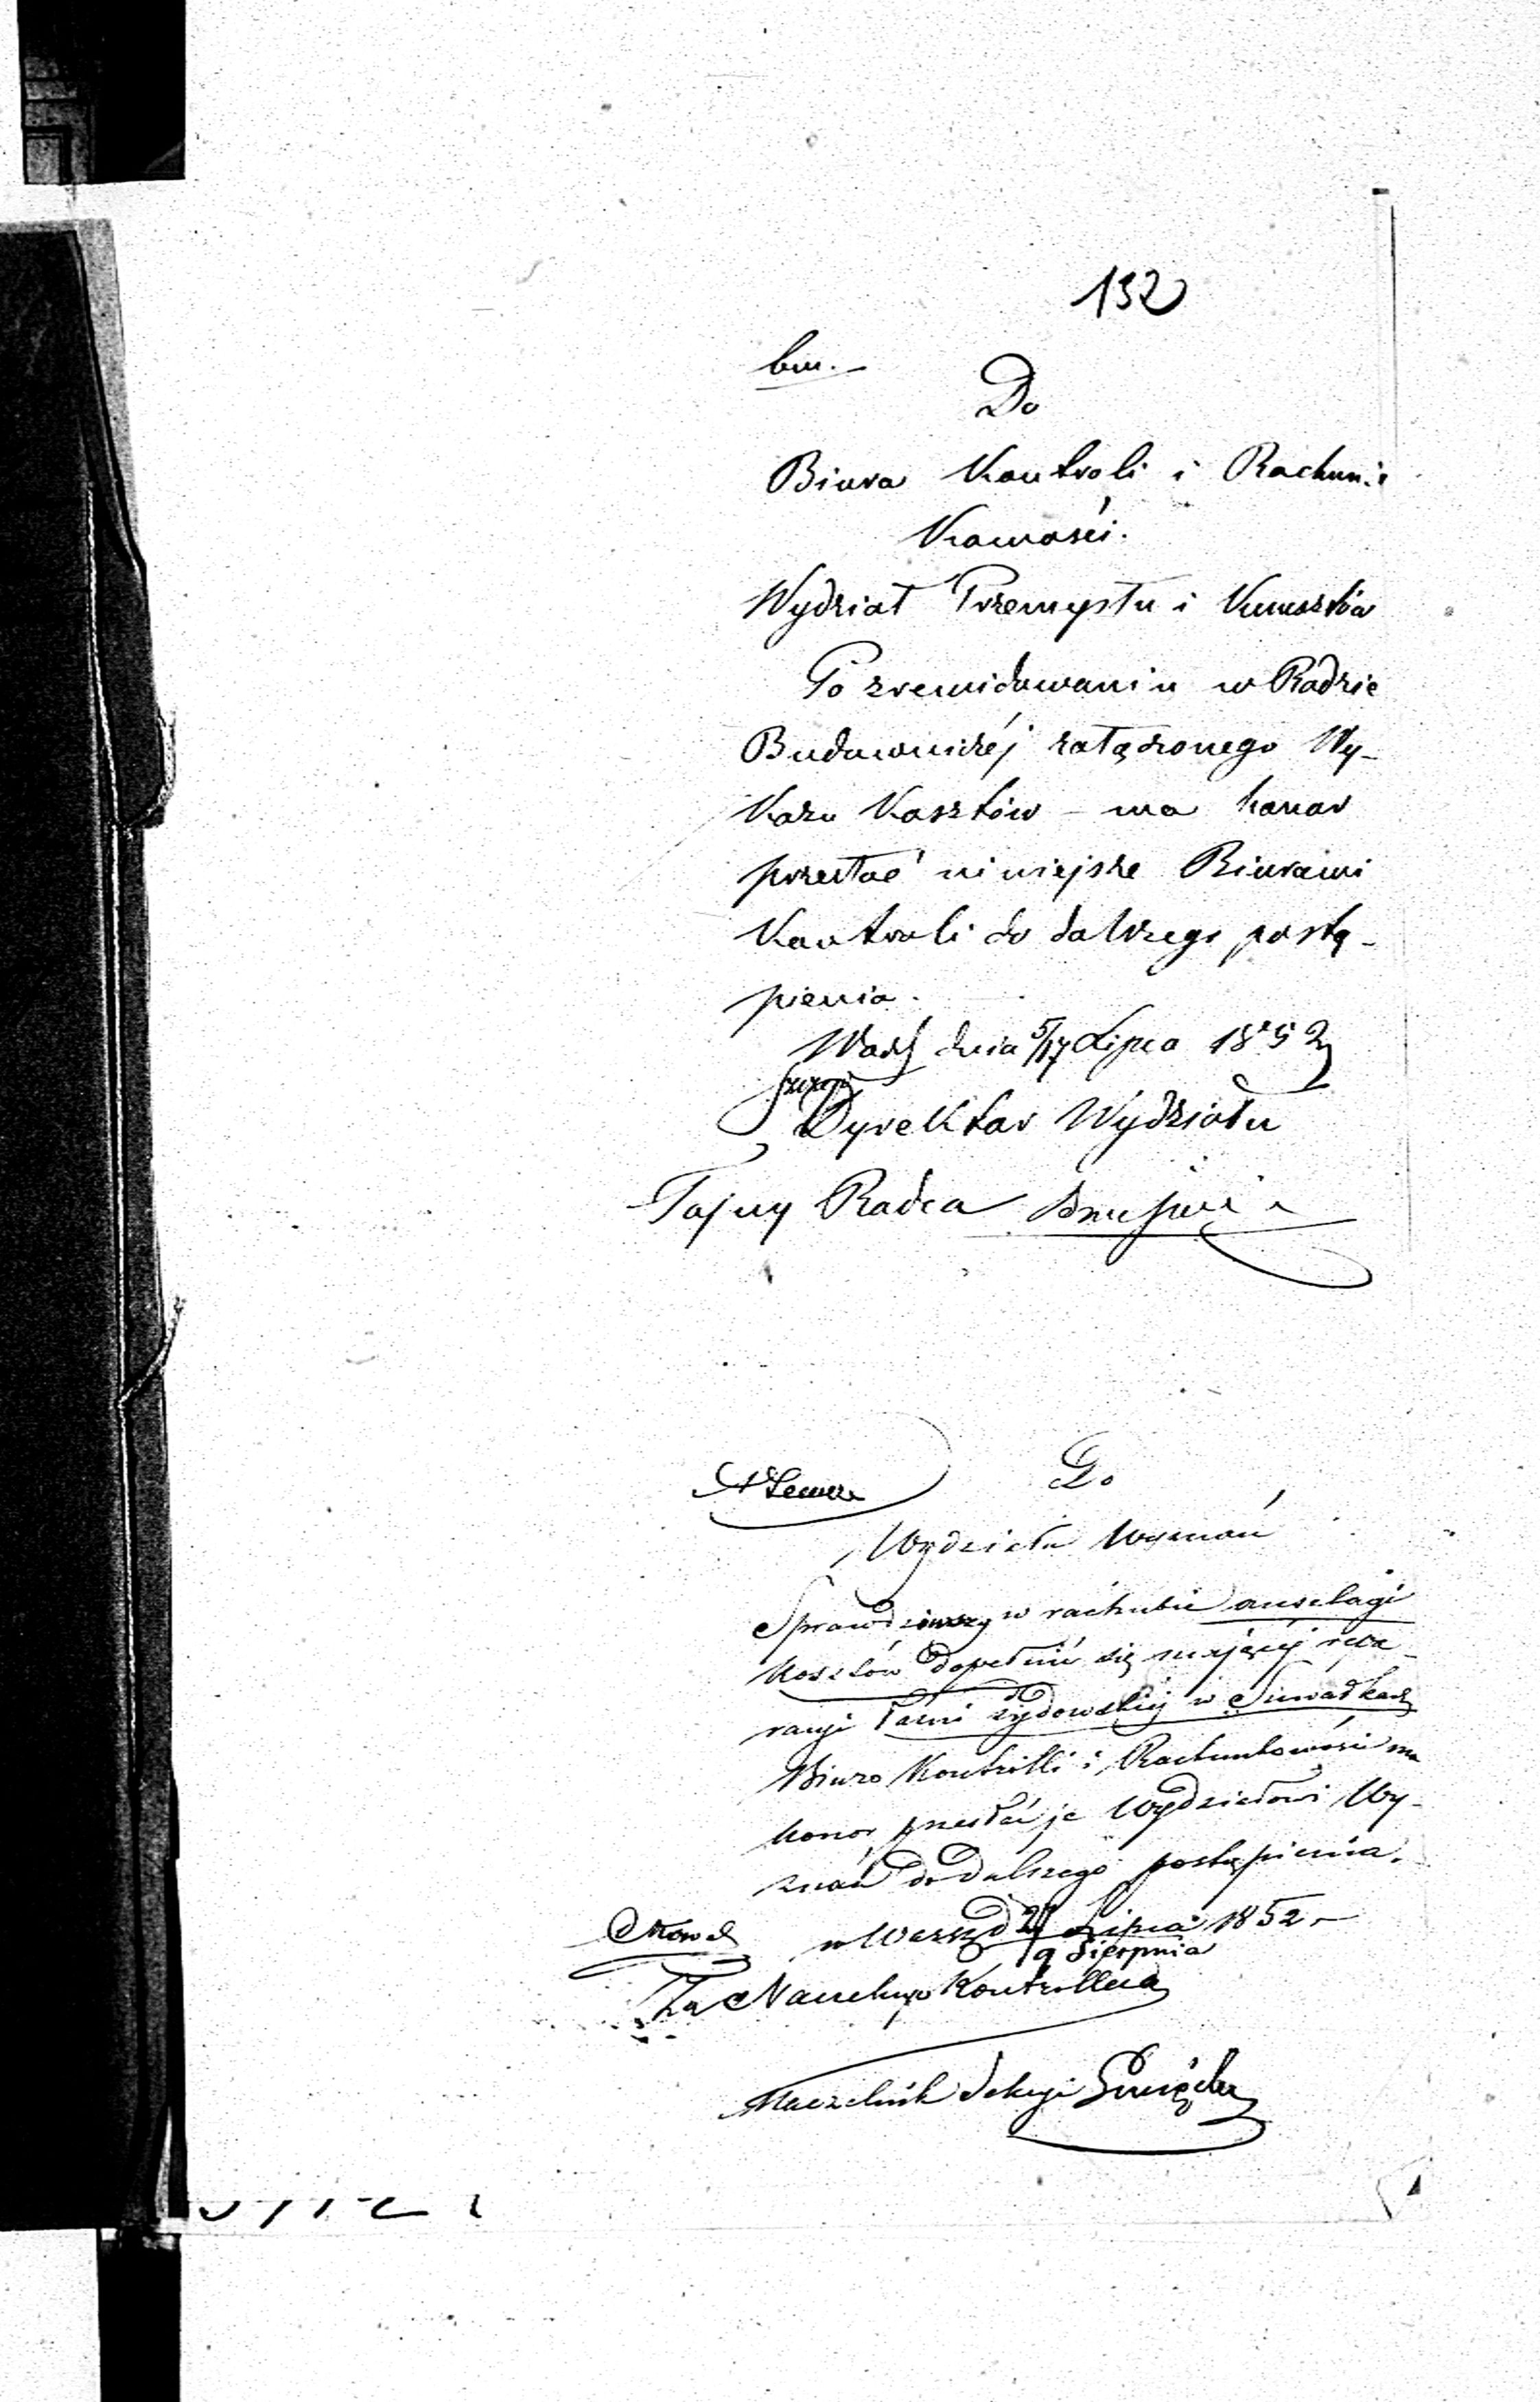 132
bm.
Do
Biura Kontroli i Rachun-
Kowości.
Wydział Przemysłu i Kunsztów
Po zrewidowaniu w Radzie
Budowniczéj załączonego Wy-
Kazu Kosztów - ma honor
przesłać niniejsze Biurowi
Kontroli do dalszego postą-
pienia.
Wars dnia 5/17 Lipca 1852
Dyrektor Wydziału
Tajny Radca
Do
Wydziału Wyznań
Sprawdziwszy w rachubie anszlagi
kosztów dopełnić się mającéj repa-
racyi Łaźni żydowskiéj w Suwałkach
Biuro Kontrolli i Rachunkowości ma
honor przesłać je Wydziałowi Wy-
znań do dalszego postąpienia.
w Warsz d 28 Lipca 1852 -
9 Sierpnia
Za Naczelnego Kontrollera
Naczelnik Sekcyi